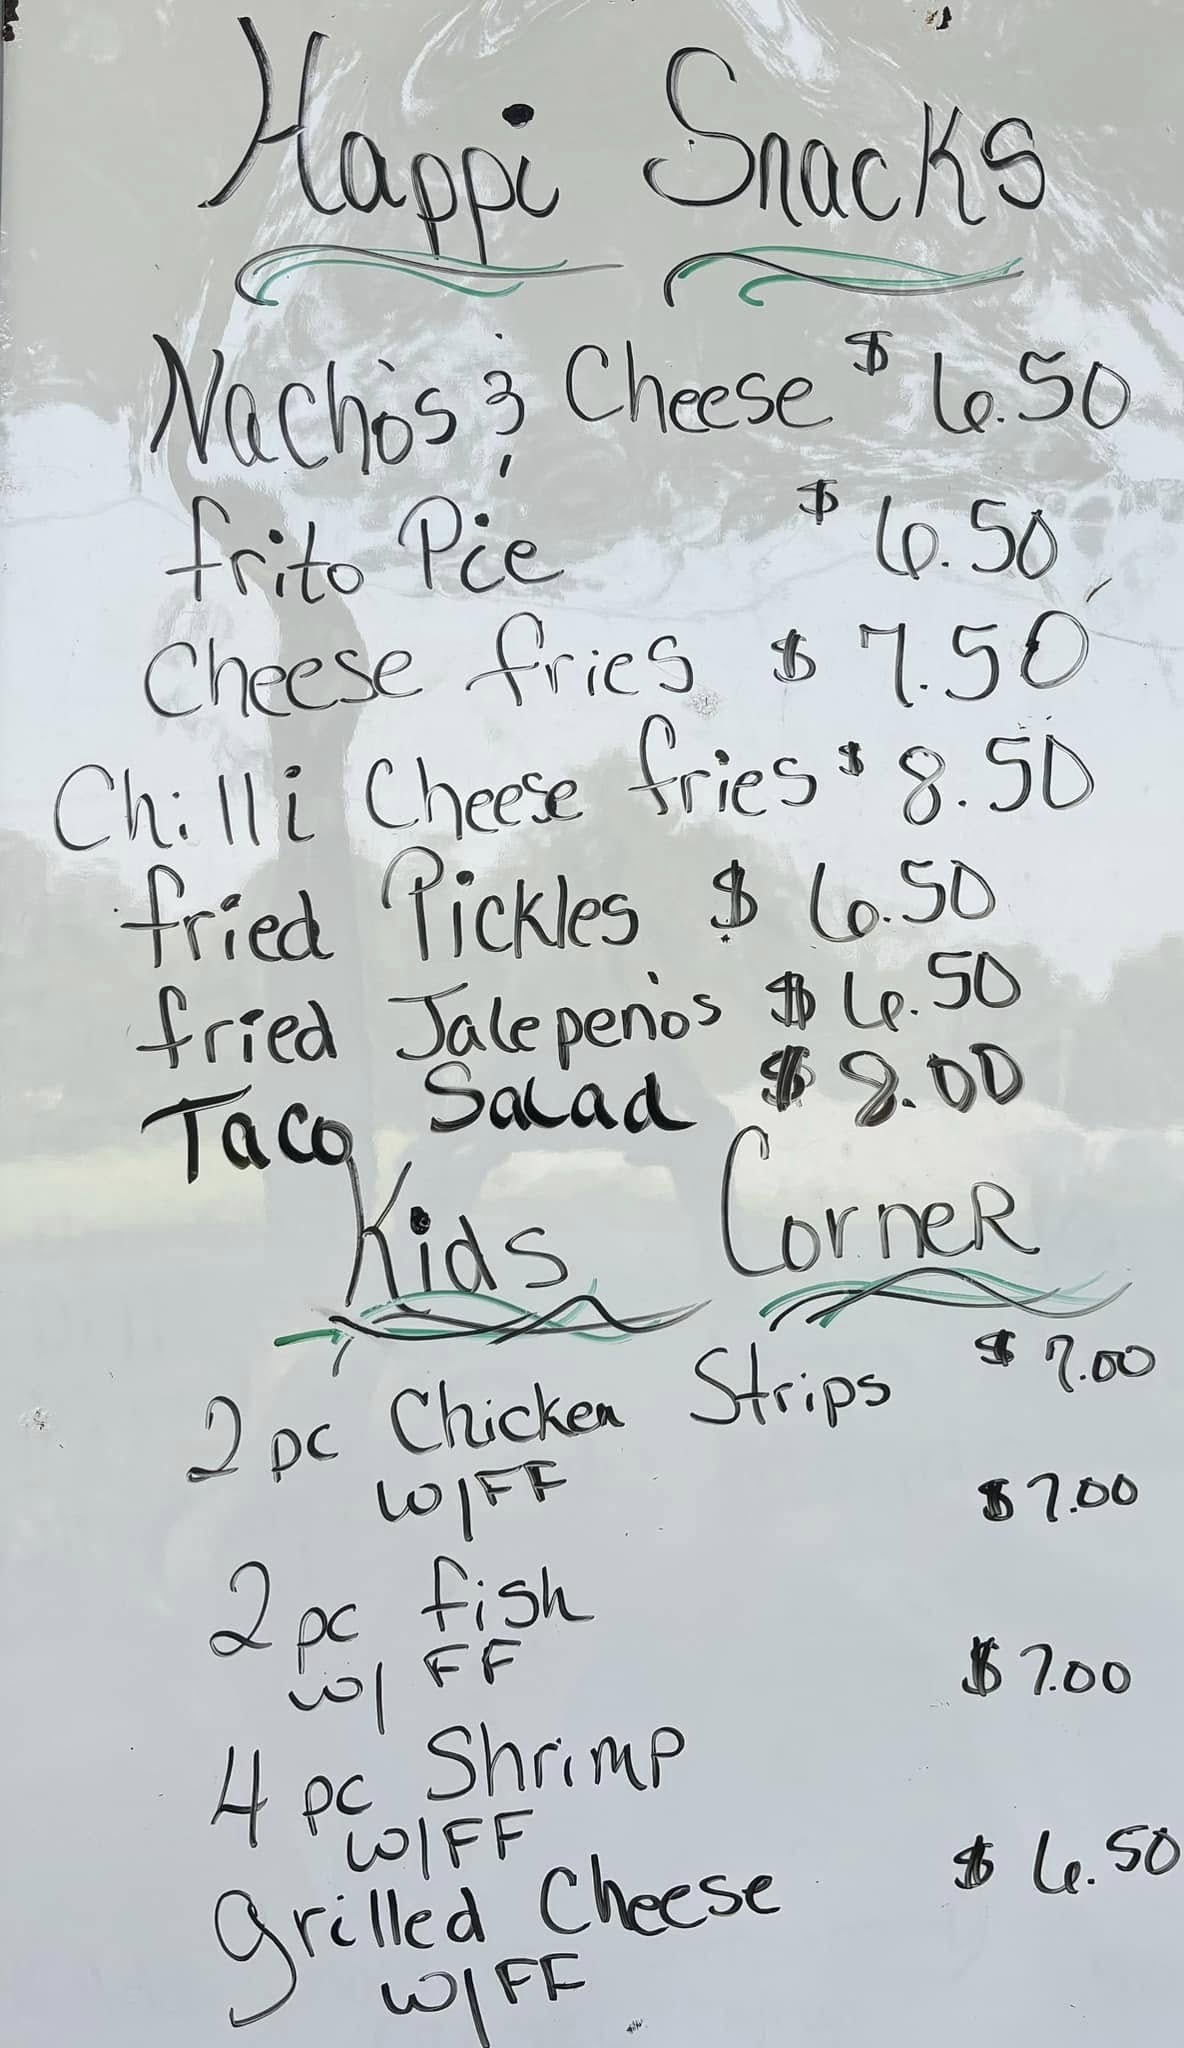 Happi Snacks
Nacho's & Cheese $6.50
frito Pie $6.50
Cheese fries $7.50
Chilli Cheese fries $8.50
fried Pickles $6.50
fried Jalepeno's $6.50
Taco Salad $8.00
Kids Corner
2 pc Chicken Strips $7.00
W/FF
$7.00
2 pc fish
W/ FF
$7.00
4 pc Shrimp
W/FF
$6.50
Grilled Cheese
W/FF